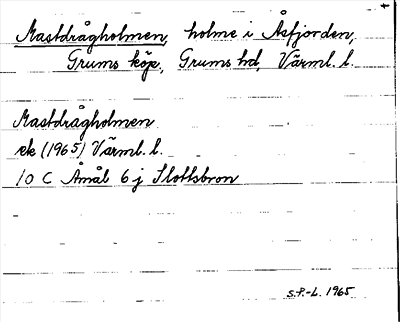 Mastdrågholmen, holme i Åsfjorden,
Grums köp, Grums hd, Värml. l.
Mastdrågholmen
ek (1965) Värml. l.
10 C Åmål 6 j Slottsbron
S.P.-L. 1965